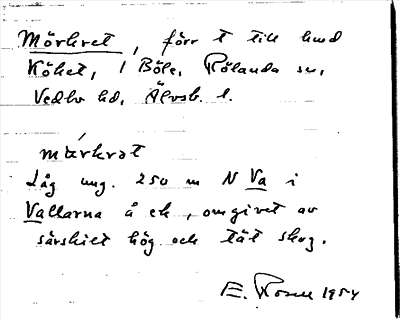 Mörkret, förr t till hmd
Köket, 1 Böle, Rölanda sn,
Vedbo hd, Älvsb. l.
mœ́rkrət
Låg ung. 250 m N Va i
Vallarna å ek, omgivet av
särskilt hög och tät skog.
E. Rosell 1954